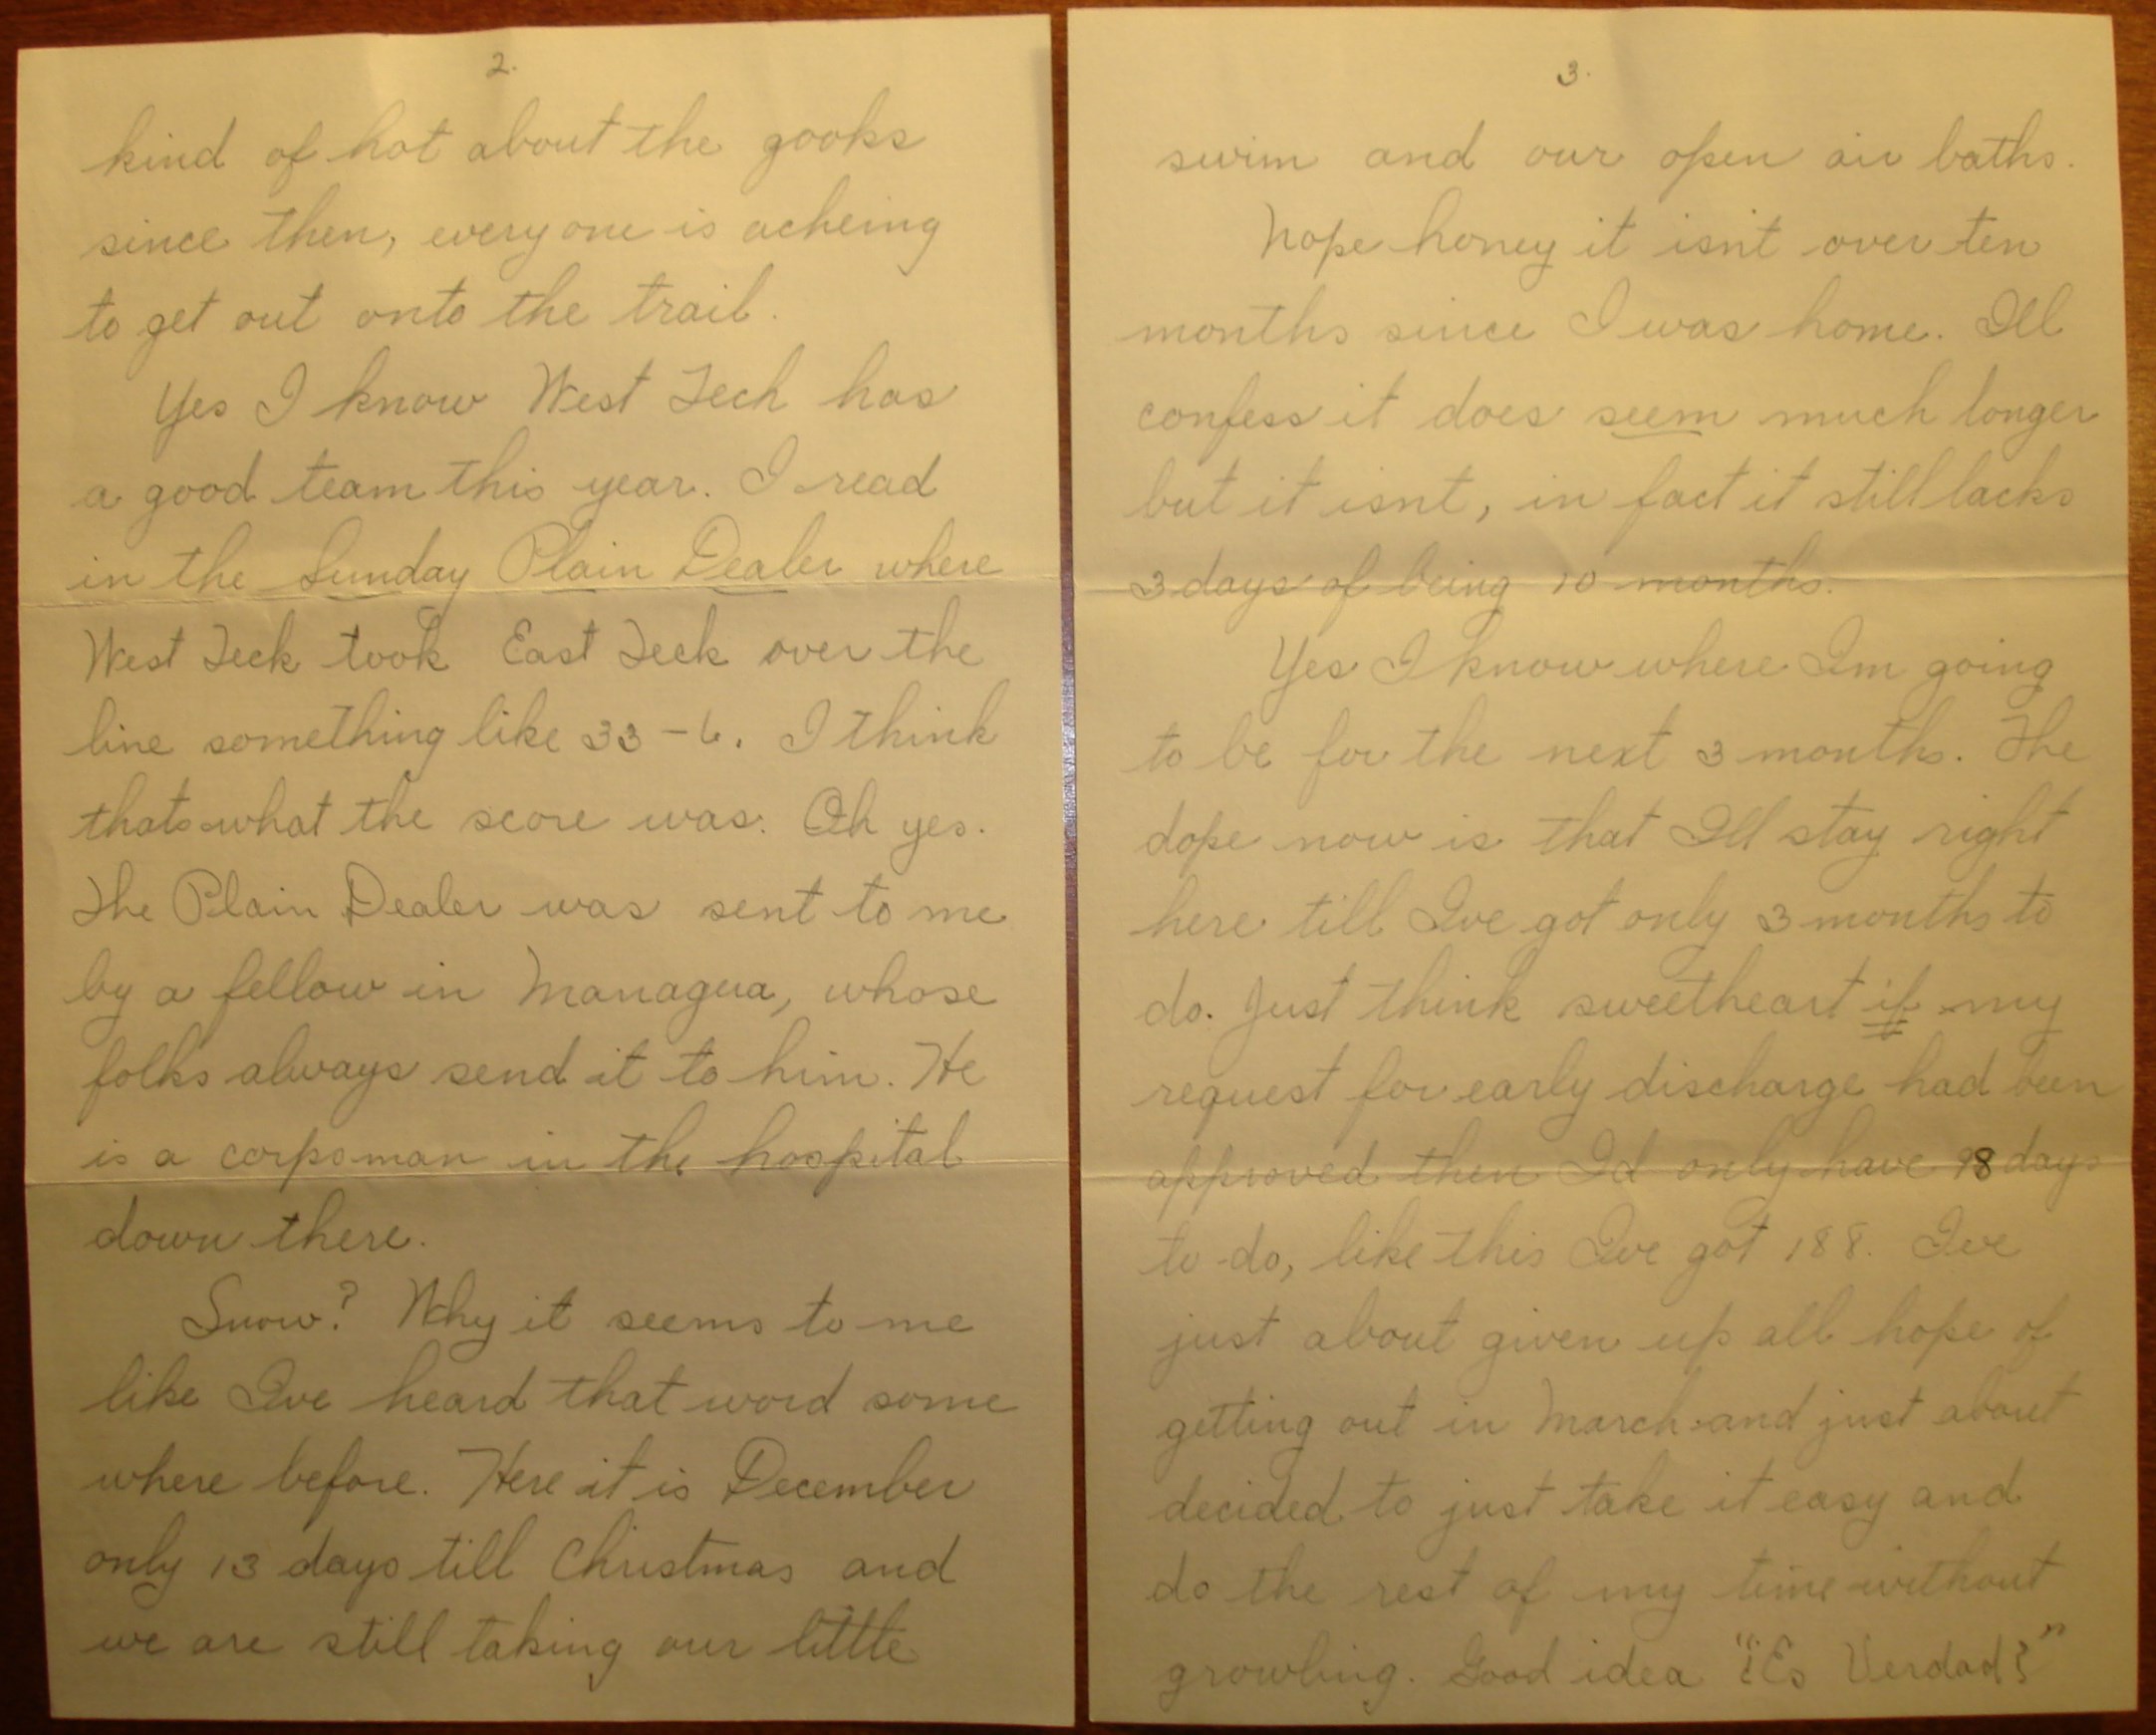 2.
kind of hot about the gooks
since then, everyone is acheing
to get out onto the trail.
Yes I know West Tech has
a good team this year. I read
in the Sunday Plain Dealer where
West Teck took East Teck over the
line something like 33-6. I think
thats what the score was. Oh yes.
The Plain Dealer was sent to me
by a fellow in Managua, whose
folks always send it to him. He
is a corpsman in the hospital
down there.
Snow? Why it seems to me
like Ive heard that word some
where before. Here it is December
only 13 days till Christmas and
we are still taking our little
3.
swim and our open air baths.
Nope honey it isn't over ten
months since I was home. Ill
confess it does seem much longer
but it isnt, in fact it still lacks
3 days of being 10 months.
Yes I know where Im going
to be for the next 3 months. The
dope now is that Ill stay right
here till Ive got only 3 months to
do. Just think sweetheart if my
request for early discharge had been
approved then Id only have 98 days
to do, like this Ive got 188. Ive
just about given up all hope of
getting out in March and just about
decided to just take it easy and
do the rest of my time without
growling. Good idea "¿Es Verdad?"